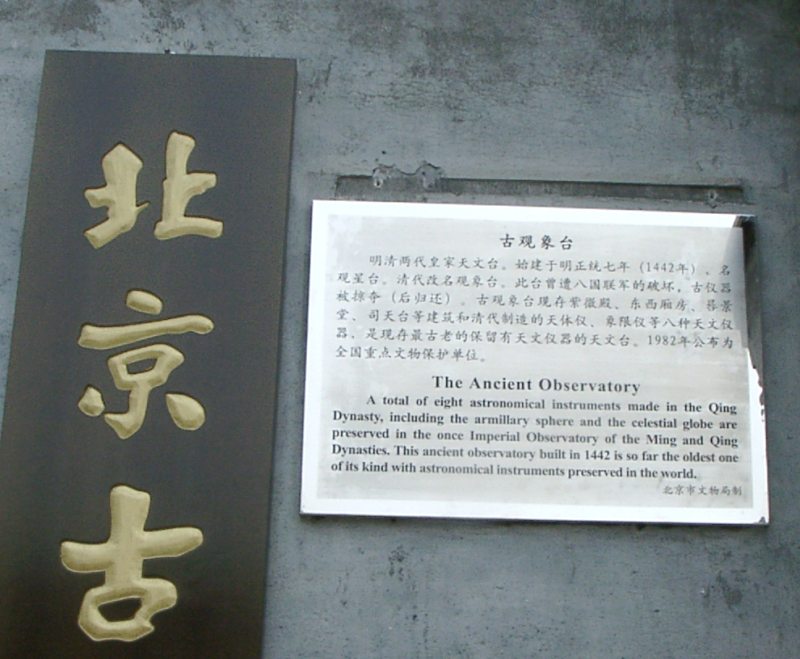 北京古
古观象台
明清两代皇家天文台。始建于明正统七年（1442年）、名
观星台。清代改名观象台。此台曾遭八国联军的破坏，古仪器
被掠夺（后归还）。古观象台现存紫微殿、东西厢房、晷景
堂、司天台等建筑和清代制造的天体仪、象限仪等八种天文仪
器、是现存最古老的保留有天文仪器的天文台。1982年公布为
全国重点文物保护单位。
The Ancient Observatory
A total of eight astronomical instruments made in the Qing
Dynasty, including the armillary sphere and the celestial globe are
preserved in the once Imperial Observatory of the Ming and Qing
Dynasties. This ancient observatory built in 1442 is so far the oldest one
of its kind with astronomical instruments preserved in the world.
北京市文物局制